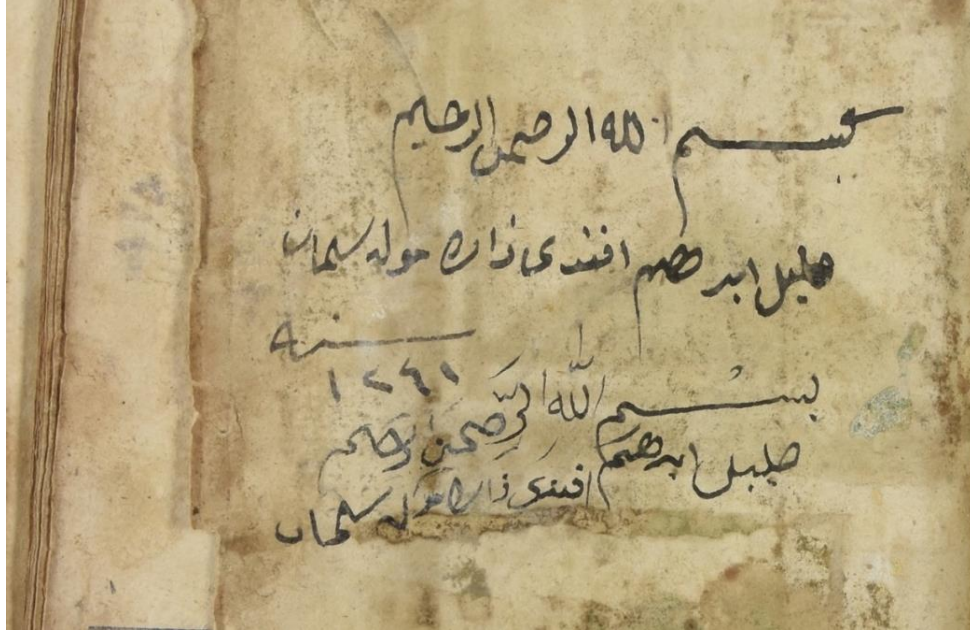 بسم الله الرحمن الرحيم
خليل ابراهيم افندى زاده مولا سليمان
سنه
١٢٤١
بسم الله الرحمن الرحيم
خليل ابراهيم
افندى زاده مولا سليمان